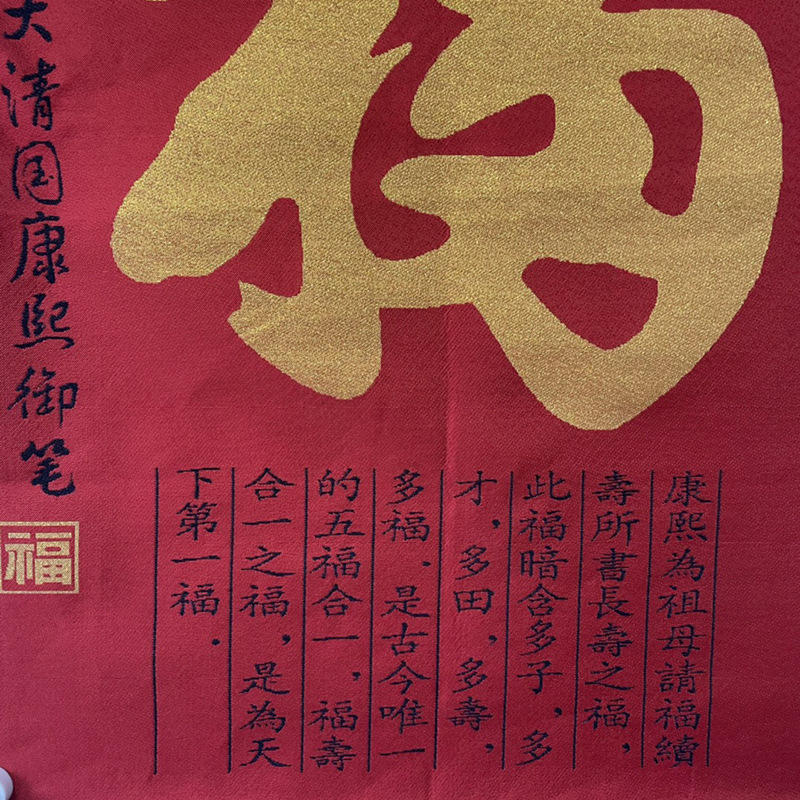 康熙為祖母請福續
壽所書長壽之福，
此福暗含多子，多
才，多田，多壽，
多福．是古今唯一
的五福合一，福壽
合一之福，是為天
下第一福．
大清国康熙御笔
福